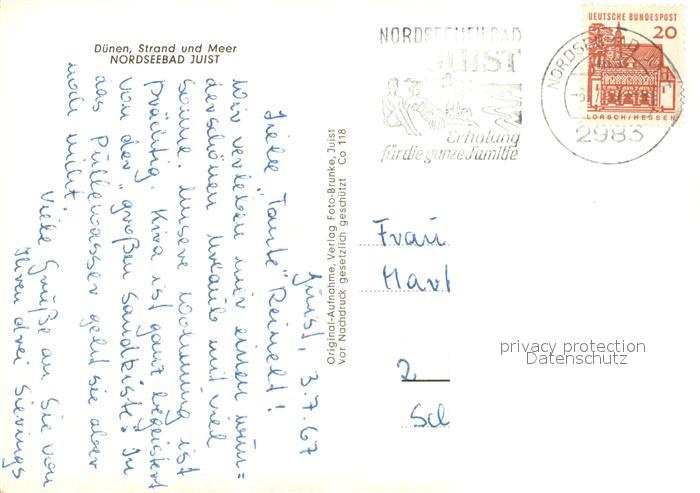 Dünen, Strand und Meer
NORDSEEBAD JUIST
Juist, 3.7.67
Liebe "Tante" Reinelt!
Wir verleben hier einen wun=
derschönen Urlaub mit viel
Sonne. Unsere Wohnung ist
prächtig. Kira ist ganz begeistert
von der "großen Sandkiste". In
das Püttewasser geht sie aber
noch nicht.
Viele Grüße an Sie von
Ihren drei Sievings
Original-Aufnahme, Verlag Foto-Brunke, Juist
Vor Nachdruck gesetzlich geschützt Co 118
NORDSEEHEILBAD
JUIST
Erholung
für die ganze Familie
NORDSEEBAD
2983
DEUTSCHE BUNDESPOST
20
LORSCH/HESSEN
Frau
Mart
2
Sch
privacy protection
Datenschutz